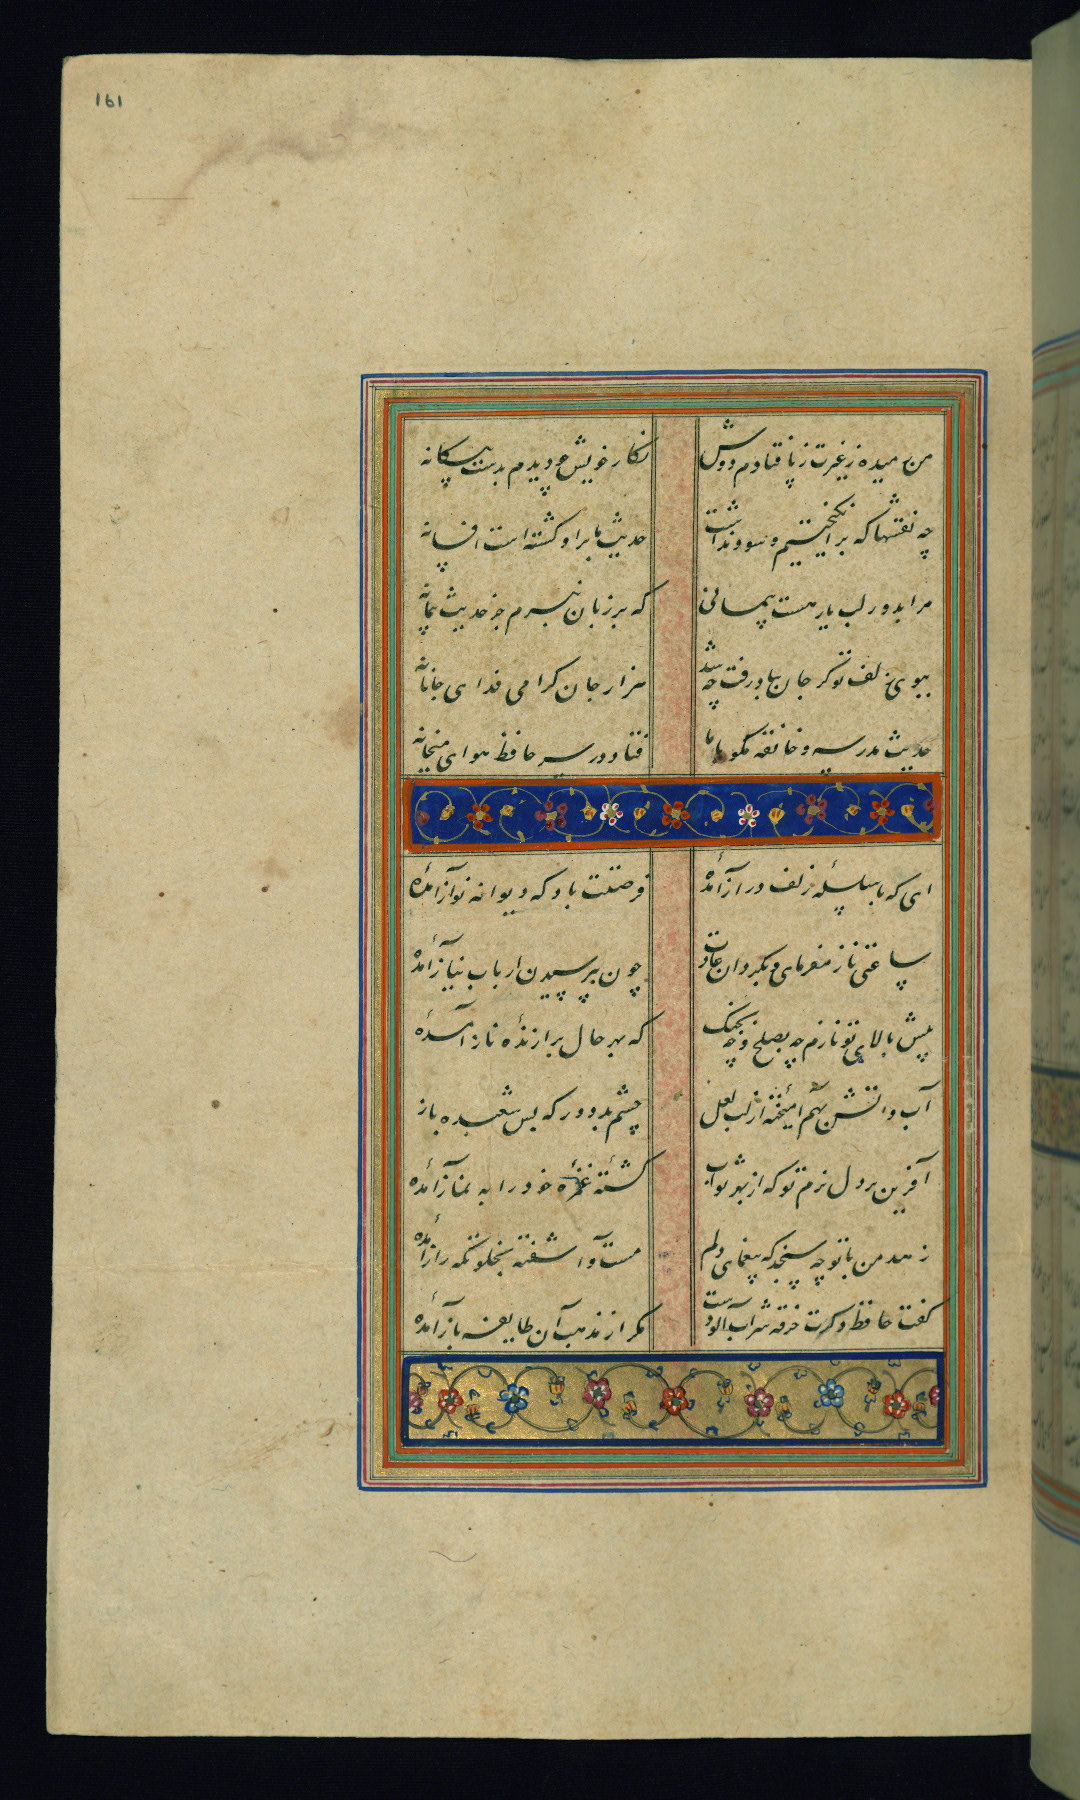 161
من رمیده ز غیرت ز پا فتادم دوش نکار خویش چو دیدم بدست بیکانه
چه نقشها که برانکیختیم و سود نداشت حدیث ما بر او کشته است افسانه
مرا بدور لب یار هست پیمانی که بر زبان نبرم جز حدیث پیمانه
ببوی زلف تو کر جان بباد رفت چه شد هزار جان کرامی فدای جانانه
حدیث مدرسه و خانقه مکو با ما فتاد در سر حافظ هوای میخانه
ای که با سلسلهٔ زلف دراز آمدهٔ فرصتت باد که دیوانه نواز آمدهٔ
ساعتی ناز مفرمای و بکردان عادت چون بپرسیدن ارباب نیاز آمدهٔ
پیش بالای تو نازم چه بصلح و چه بجنک که بهر حال برازندهٔ ناز آمدهٔ
آب و آتش بهم آمیختهٔ از لب لعل چشم بد دور که بس شعبده باز
آفرین بر دل نرم تو که از بهر ثواب کشتهٔ غمزهٔ خود را به نماز آمدهٔ
زهد من با تو چه سنجد که بیغمای دلم مست و آشفته بخلوتکه راز آمدهٔ
کفت حافظ دکرت خرقه شراب آلودست مکر از مذهب آن طایفه باز آمدهٔ